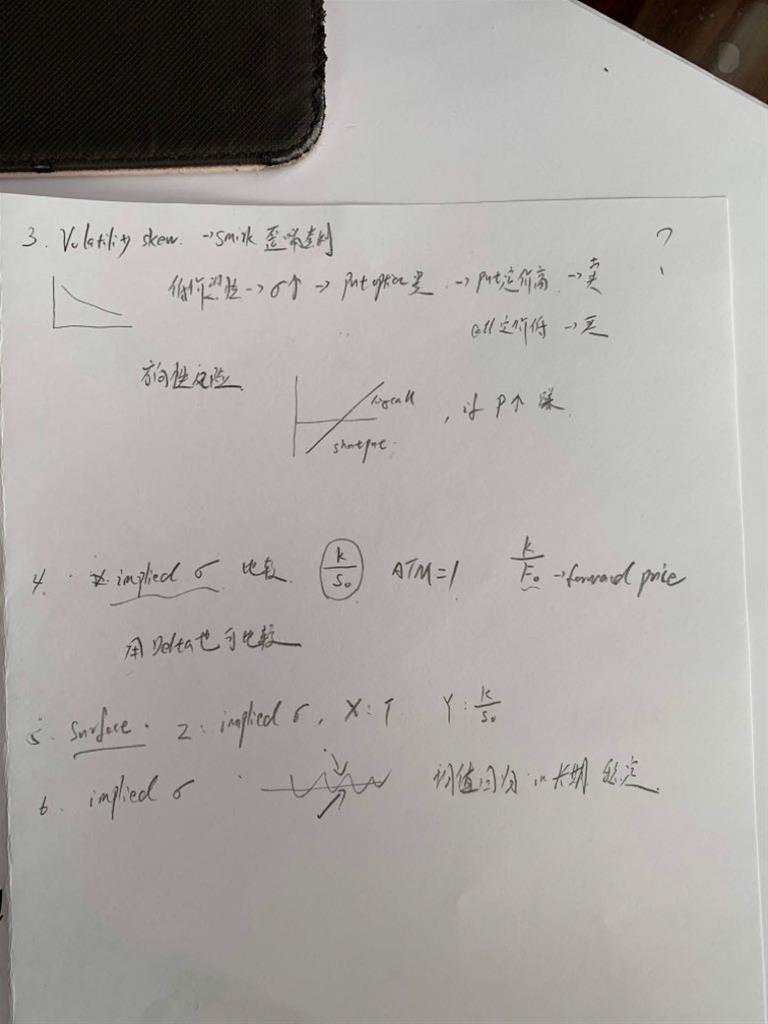 3. Volatility skew. → smirk 歪嘴 ?
低价 → σ↑ → put option 贵 → put定价高 → 卖
call定价低 → 买
方向性风险
long call
short put
, if P↑ 赚
4. implied σ 比较 K/S₀ ATM=1 K/F₀ → forward price
用 Delta 也可比较
5. Surface. Z: implied σ, X: T Y: K/S₀
6. implied σ 均值回归 in 长期 稳定